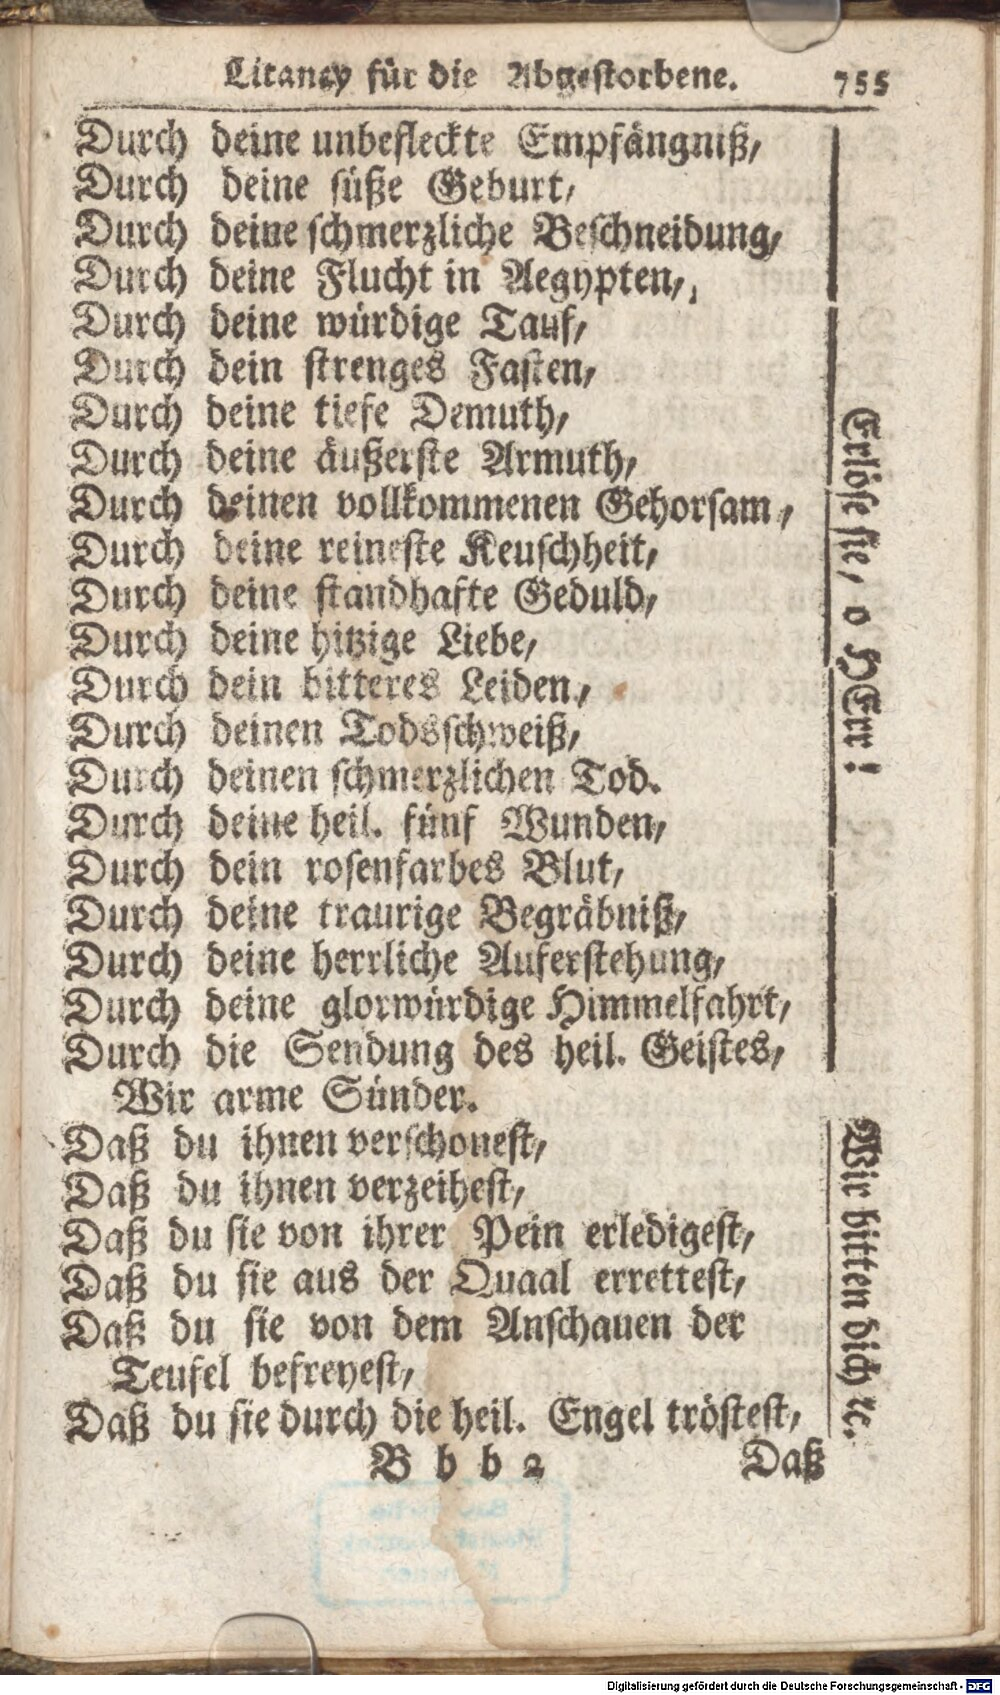 Litaney für die Abgestorbene. 755
Durch deine unbefleckte Empfängniß,
Durch deine süße Geburt,
Durch deine schmerzliche Beschneidung,
Durch deine Flucht in Aegypten,
Durch deine würdige Tauf,
Durch dein strenges Fasten,
Durch deine tiefe Demuth,
Durch deine äußerste Armuth,
Durch deinen vollkommenen Gehorsam,
Durch deine reineste Keuschheit,
Durch deine standhafte Geduld,
Durch deine hitzige Liebe,
Durch dein bitteres Leiden,
Durch deinen Todsschweiß,
Durch deinen schmerzlichen Tod.
Durch deine heil. fünf Wunden,
Durch dein rosenfarbes Blut,
Durch deine traurige Begräbniß,
Durch deine herrliche Auferstehung,
Durch deine glorwürdige Himmelfahrt,
Durch die Sendung des heil. Geistes,
Erlöse sie, o HErr!
Wir arme Sünder.
Daß du ihnen verschonest,
Daß du ihnen verzeihest,
Daß du sie von ihrer Pein erledigest,
Daß du sie aus der Quaal errettest,
Daß du sie von dem Anschauen der
Teufel befreyest,
Daß du sie durch die heil. Engel tröstest,
Wir bitten dich ꝛc.
B b b 2 Daß
Digitalisierung gefördert durch die Deutsche Forschungsgemeinschaft - DFG